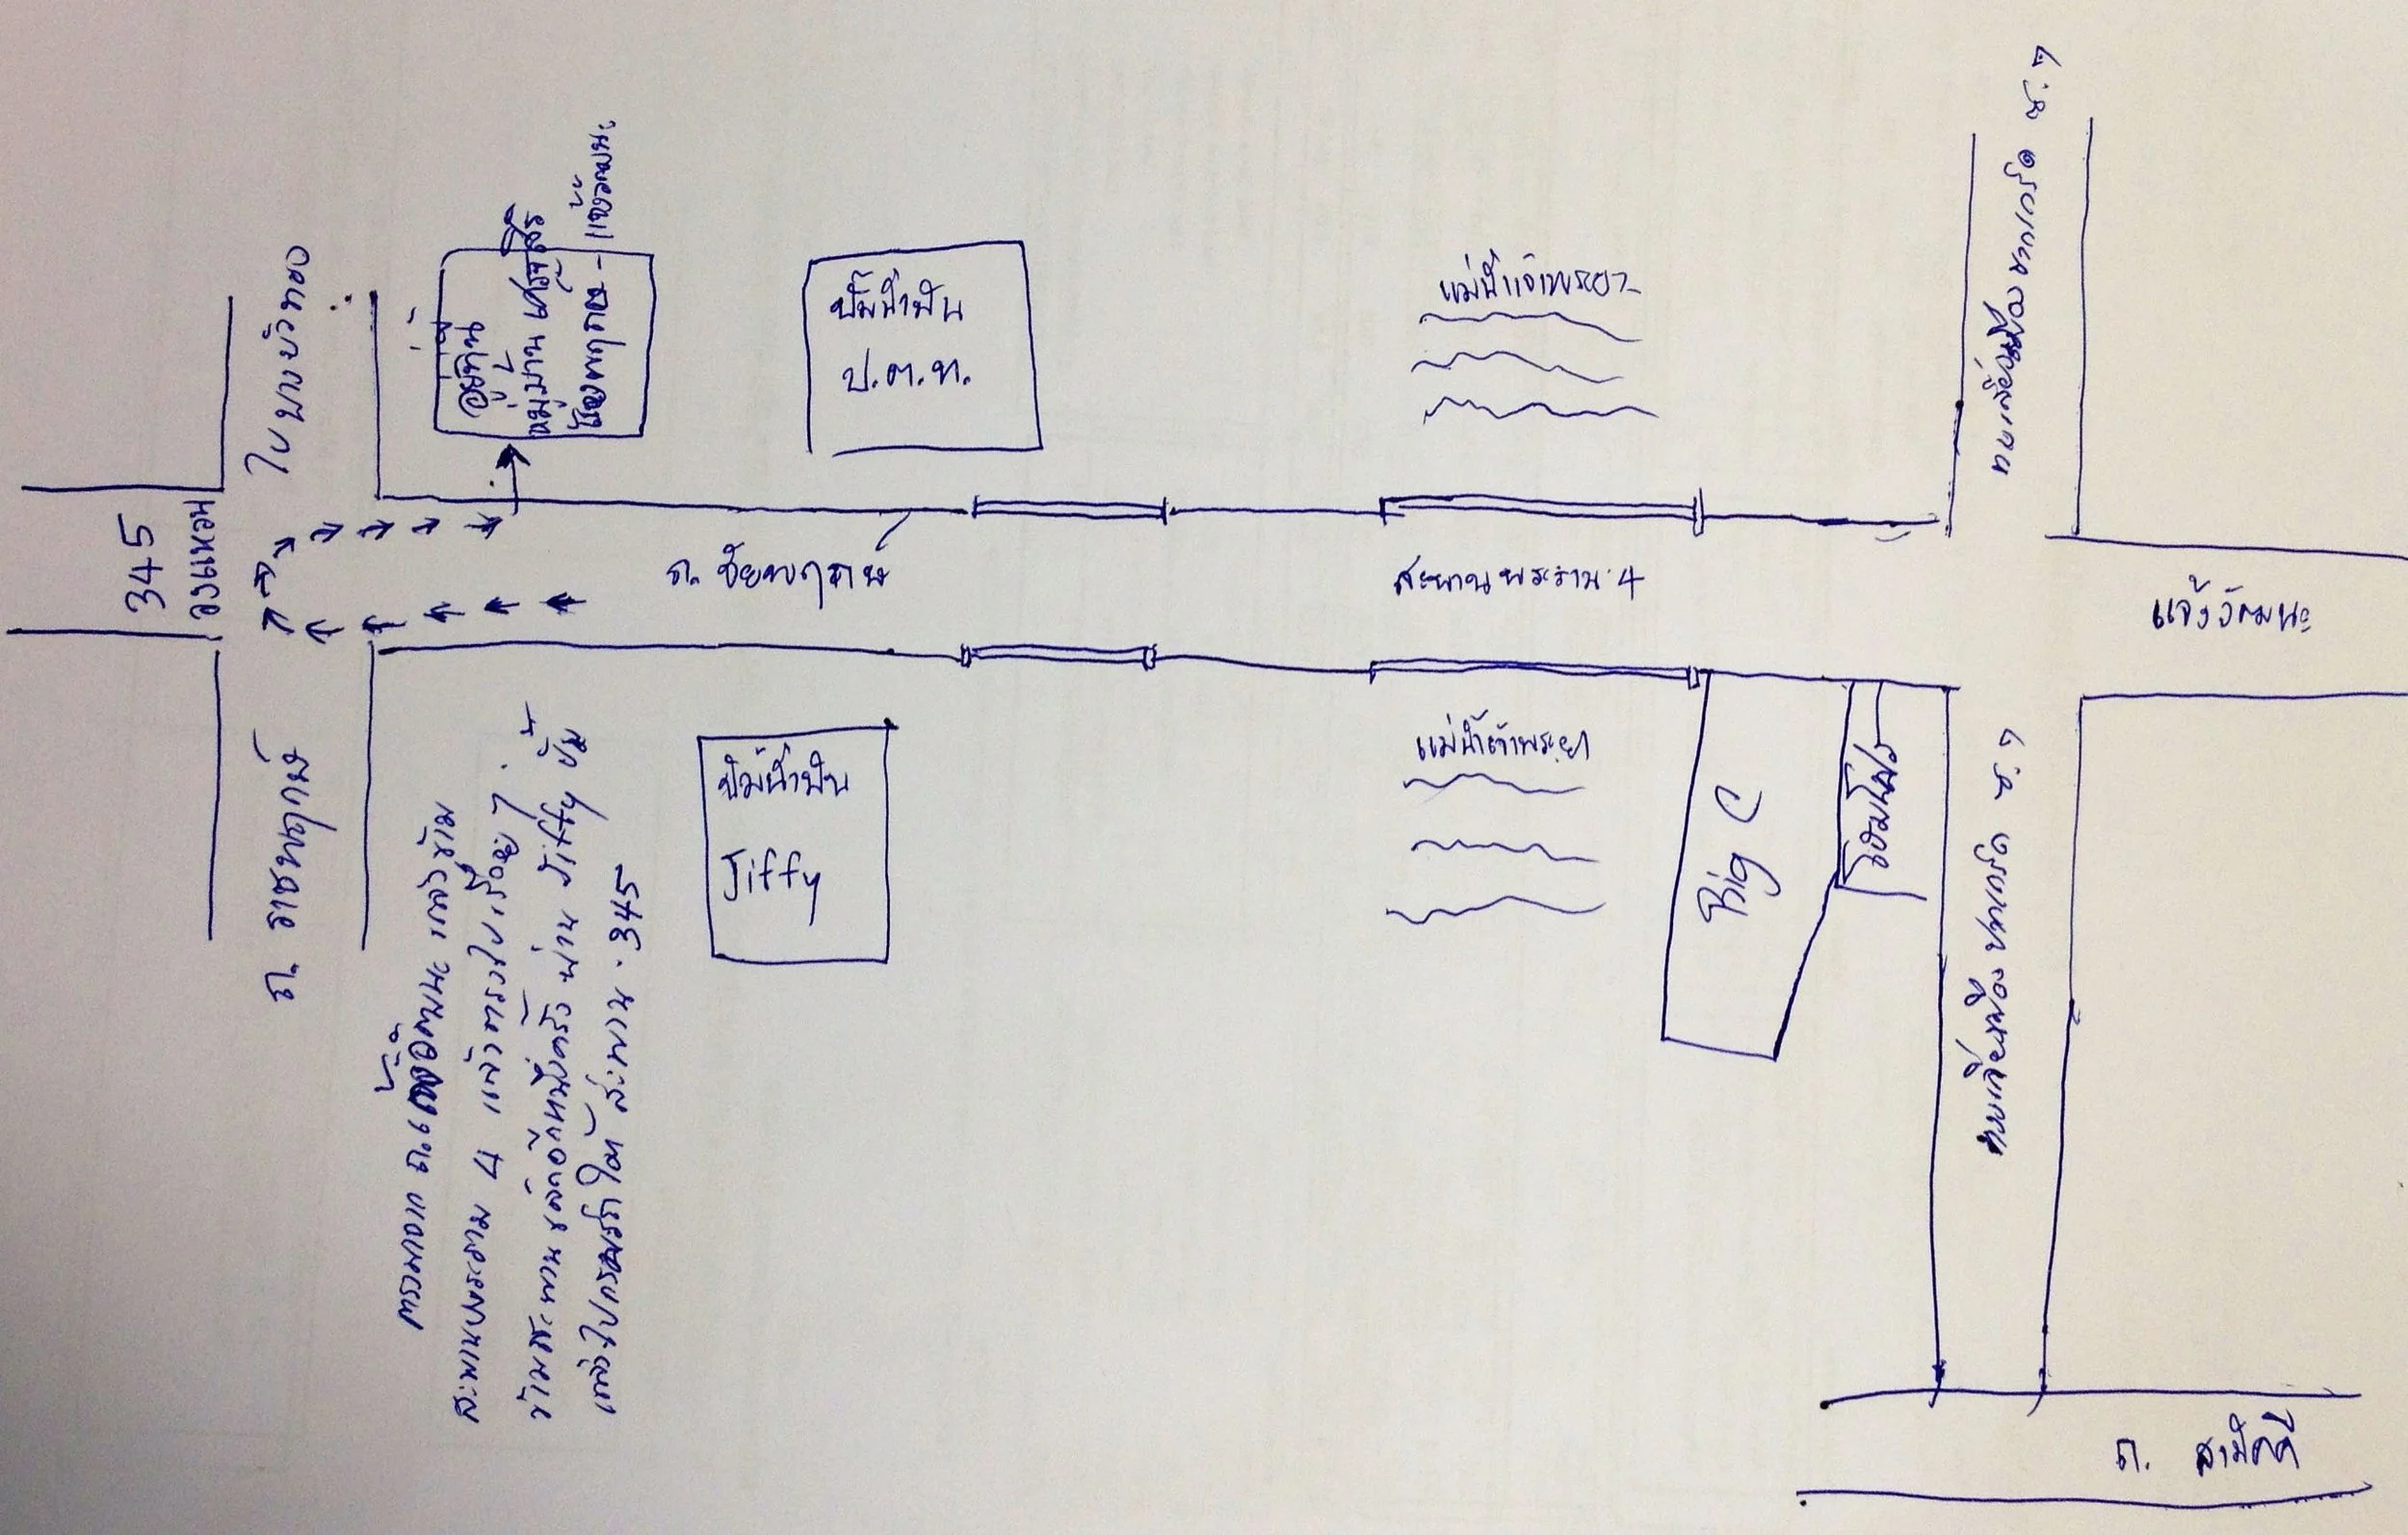 ไปบางบัวทอง
3345
วงแหวน
ถ. ราชพฤกษ์
อยู่ที่นี่
หมู่บ้าน เศรษฐสิริ
ชัยพฤกษ์ - แจ้งวัฒนะ
ปั๊มน้ำมัน
ป.ต.ท.
ถ. ชัยพฤกษ์
ปั๊มน้ำมัน
Jiffy
แม่น้ำเจ้าพระยา
สะพานพระราม 4
แม่น้ำเจ้าพระยา
Big C
โฮมโปร
ทางเลี่ยงเมืองปากเกร็ด
แจ้งวัฒนะ
ทางเลี่ยงเมืองปากเกร็ด
ถ. สามัคคี
ตรงมาจาก ถ.แจ้งวัฒนะ แล้วข้าม
สะพานพระราม 4 แล้วตรงไปเรื่อยๆ
ข้ามสะพานเล็กอีกหนึ่งครั้ง ผ่าน Jiffy ปั๊ม
แล้วไปกลับรถใต้สะพาน 345